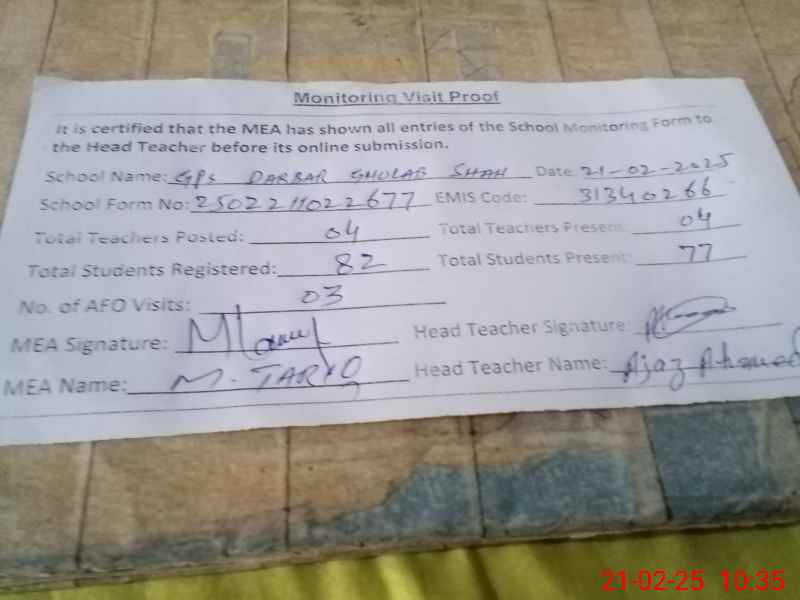 Monitoring Visit Proof
It is certified that the MEA has shown all entries of the School Monitoring Form to
the Head Teacher before its online submission.
School Name: GPS DARBAR GHULAB SHAH Date: 21-02-2025
School Form No: 2502211022677 EMIS Code: 31340266
Total Teachers Posted: 04 Total Teachers Present: 04
Total Students Registered: 82 Total Students Present: 77
No. of AFO Visits: 03
MEA Signature: Head Teacher Signature:
MEA Name: M. TARIQ Head Teacher Name: Ajaz Ahmed
21-02-25 10:35